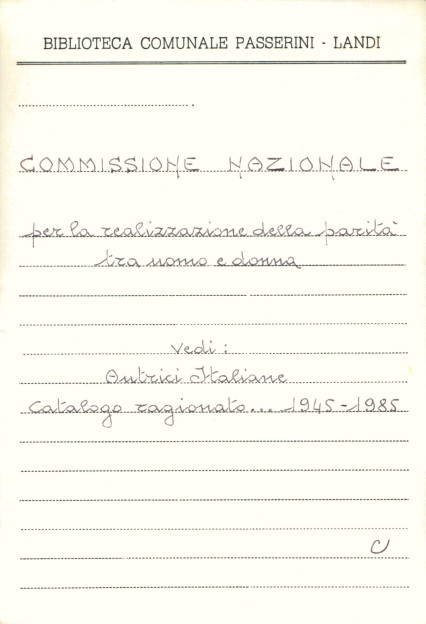 BIBLIOTECA COMUNALE PASSERINI - LANDI
COMMISSIONE NAZIONALE
per la realizzazione della parità
tra uomo e donna
Vedi:
Autrici Italiane
Catalogo ragionato... 1945-1985
C